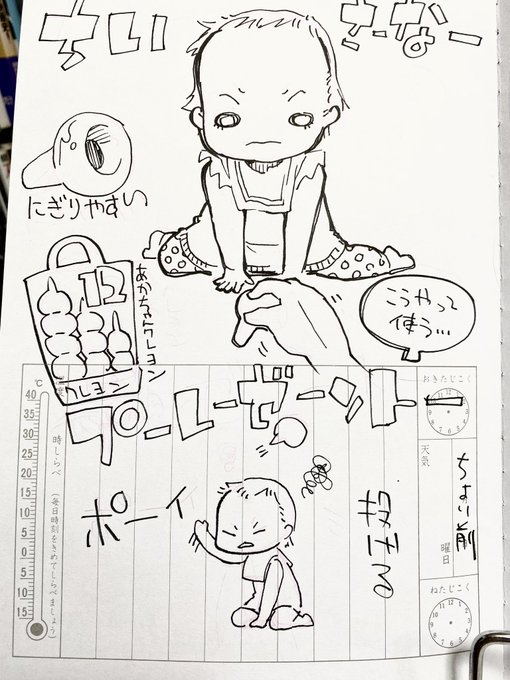 にぎりやすい
12
クレヨン
あかちゃんクレヨン
こうやって
使う…
プーレーゼーントー
ポーイ
おきたじこく
天気
ちょい前
曜日
ねたじこく
℃
40
35
30
25
20
15
10
5
0
5
10
15
時しらべ（毎日時刻をきめてしらべましょう）